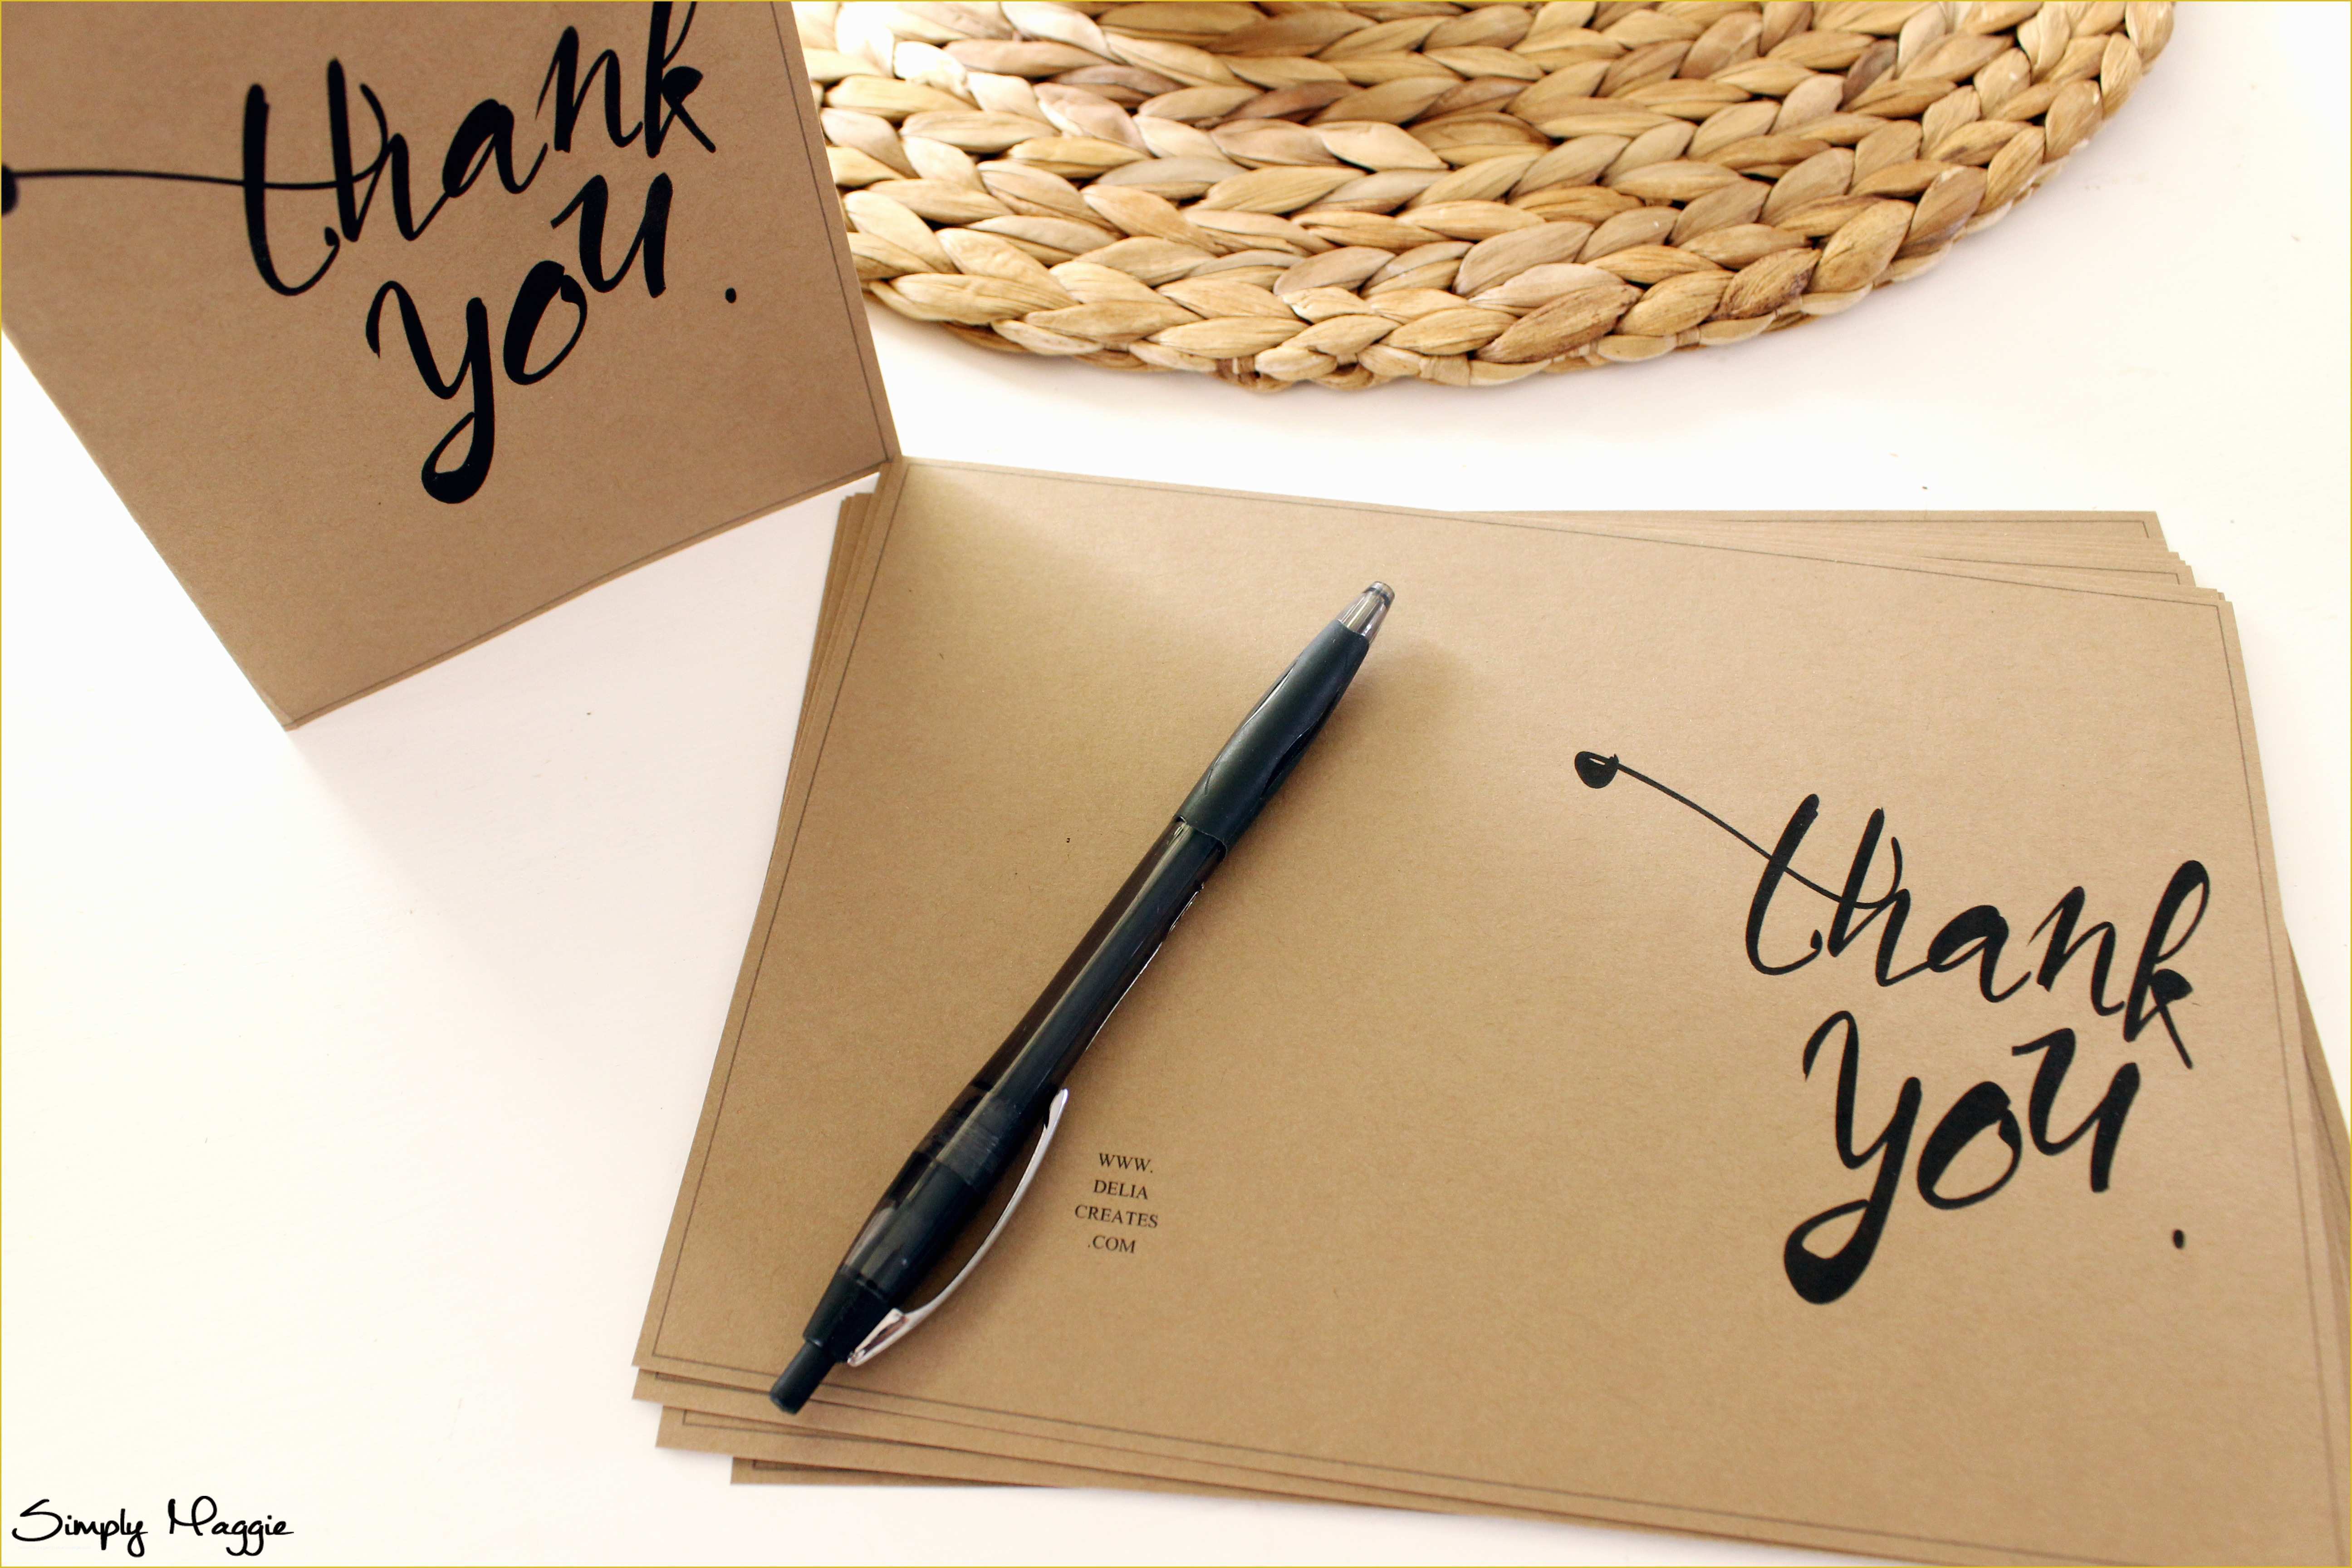 thank
you.
thank
you.
WWW.
DELIA
CREATES
.COM
Simply Maggie